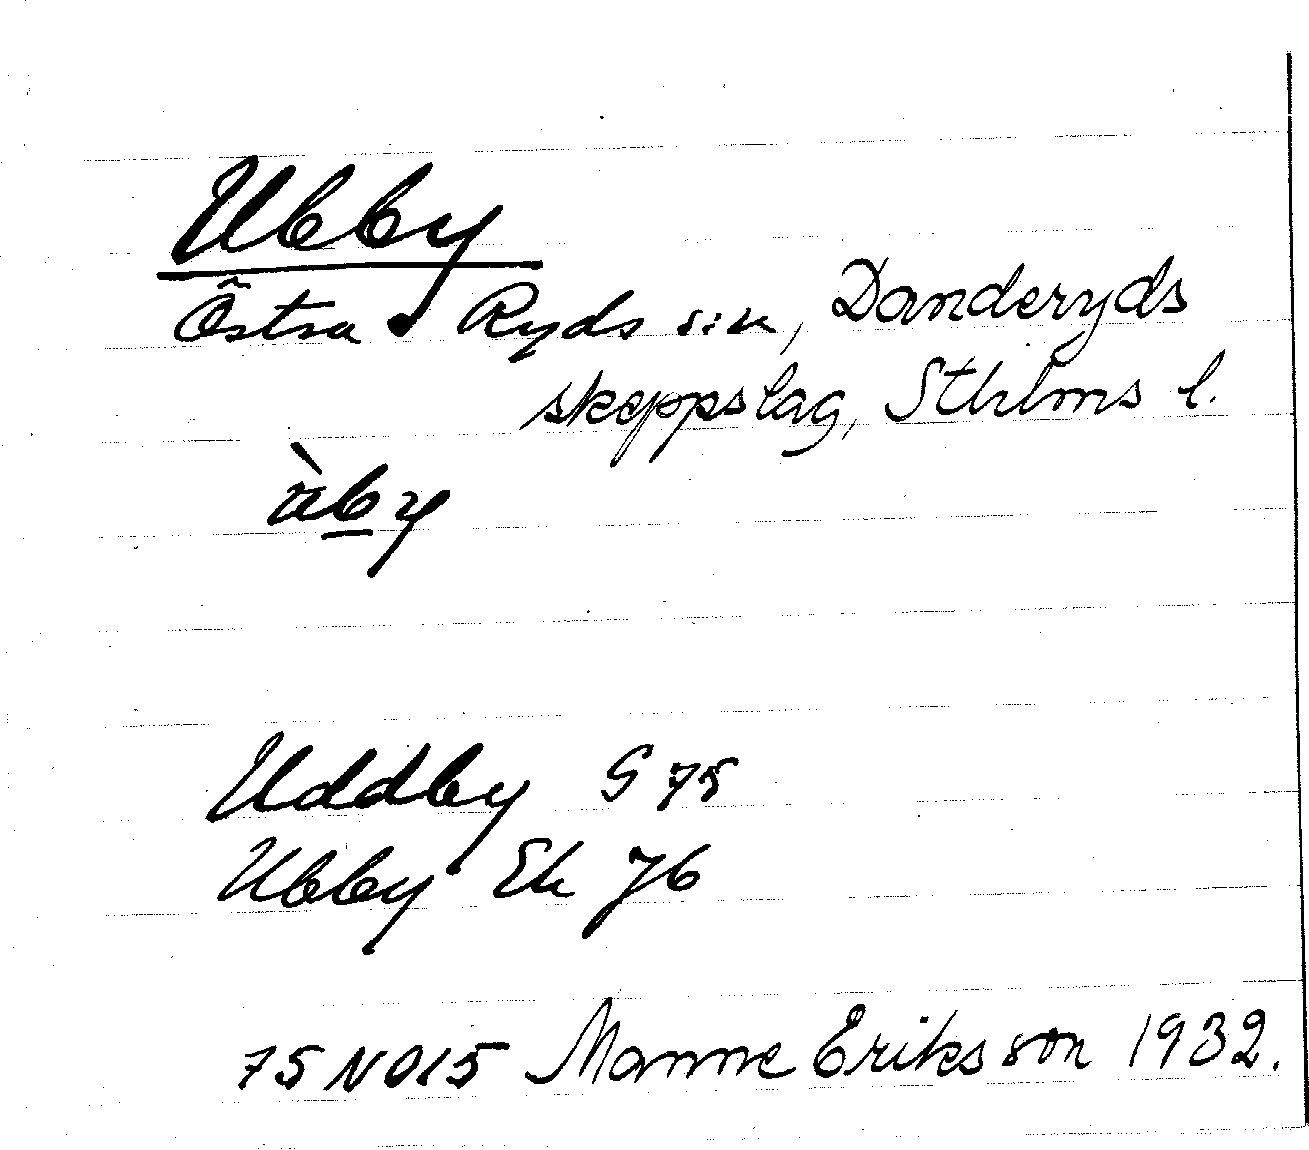 Ubby
Östra Ryds sn, Danderyds
skeppslag, Sthlms l.
ùby
Uddby G 75
Ubby Ek 76
75 NO 15 Manne Eriksson 1932.